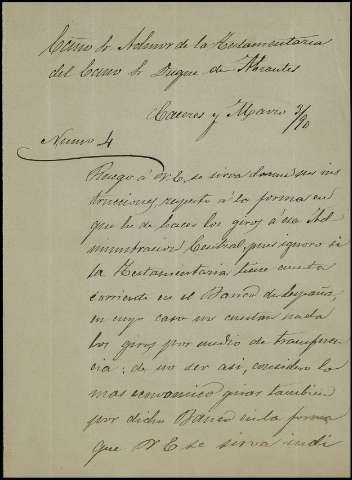 Excmo Sr Admor de la Testamentaria
del Excmo Sr Duque de Abrantes
Caceres y Marzo 3/90
Numo 4
Ruego á V.E. se sirva darme sus ins
trucciones respeto á la forma en
que he de hacer los giros á esa Ad
ministracion Central, pues ignoro si
la Testamentaria tiene cuenta
corriente en el Banco de España,
en cuyo caso no cuestan nada
los giros por medio de transferen
cia; de no ser asi, considero lo
mas economico girar tambien
por dicho Banco en la forma
que V.E. se sirva indi